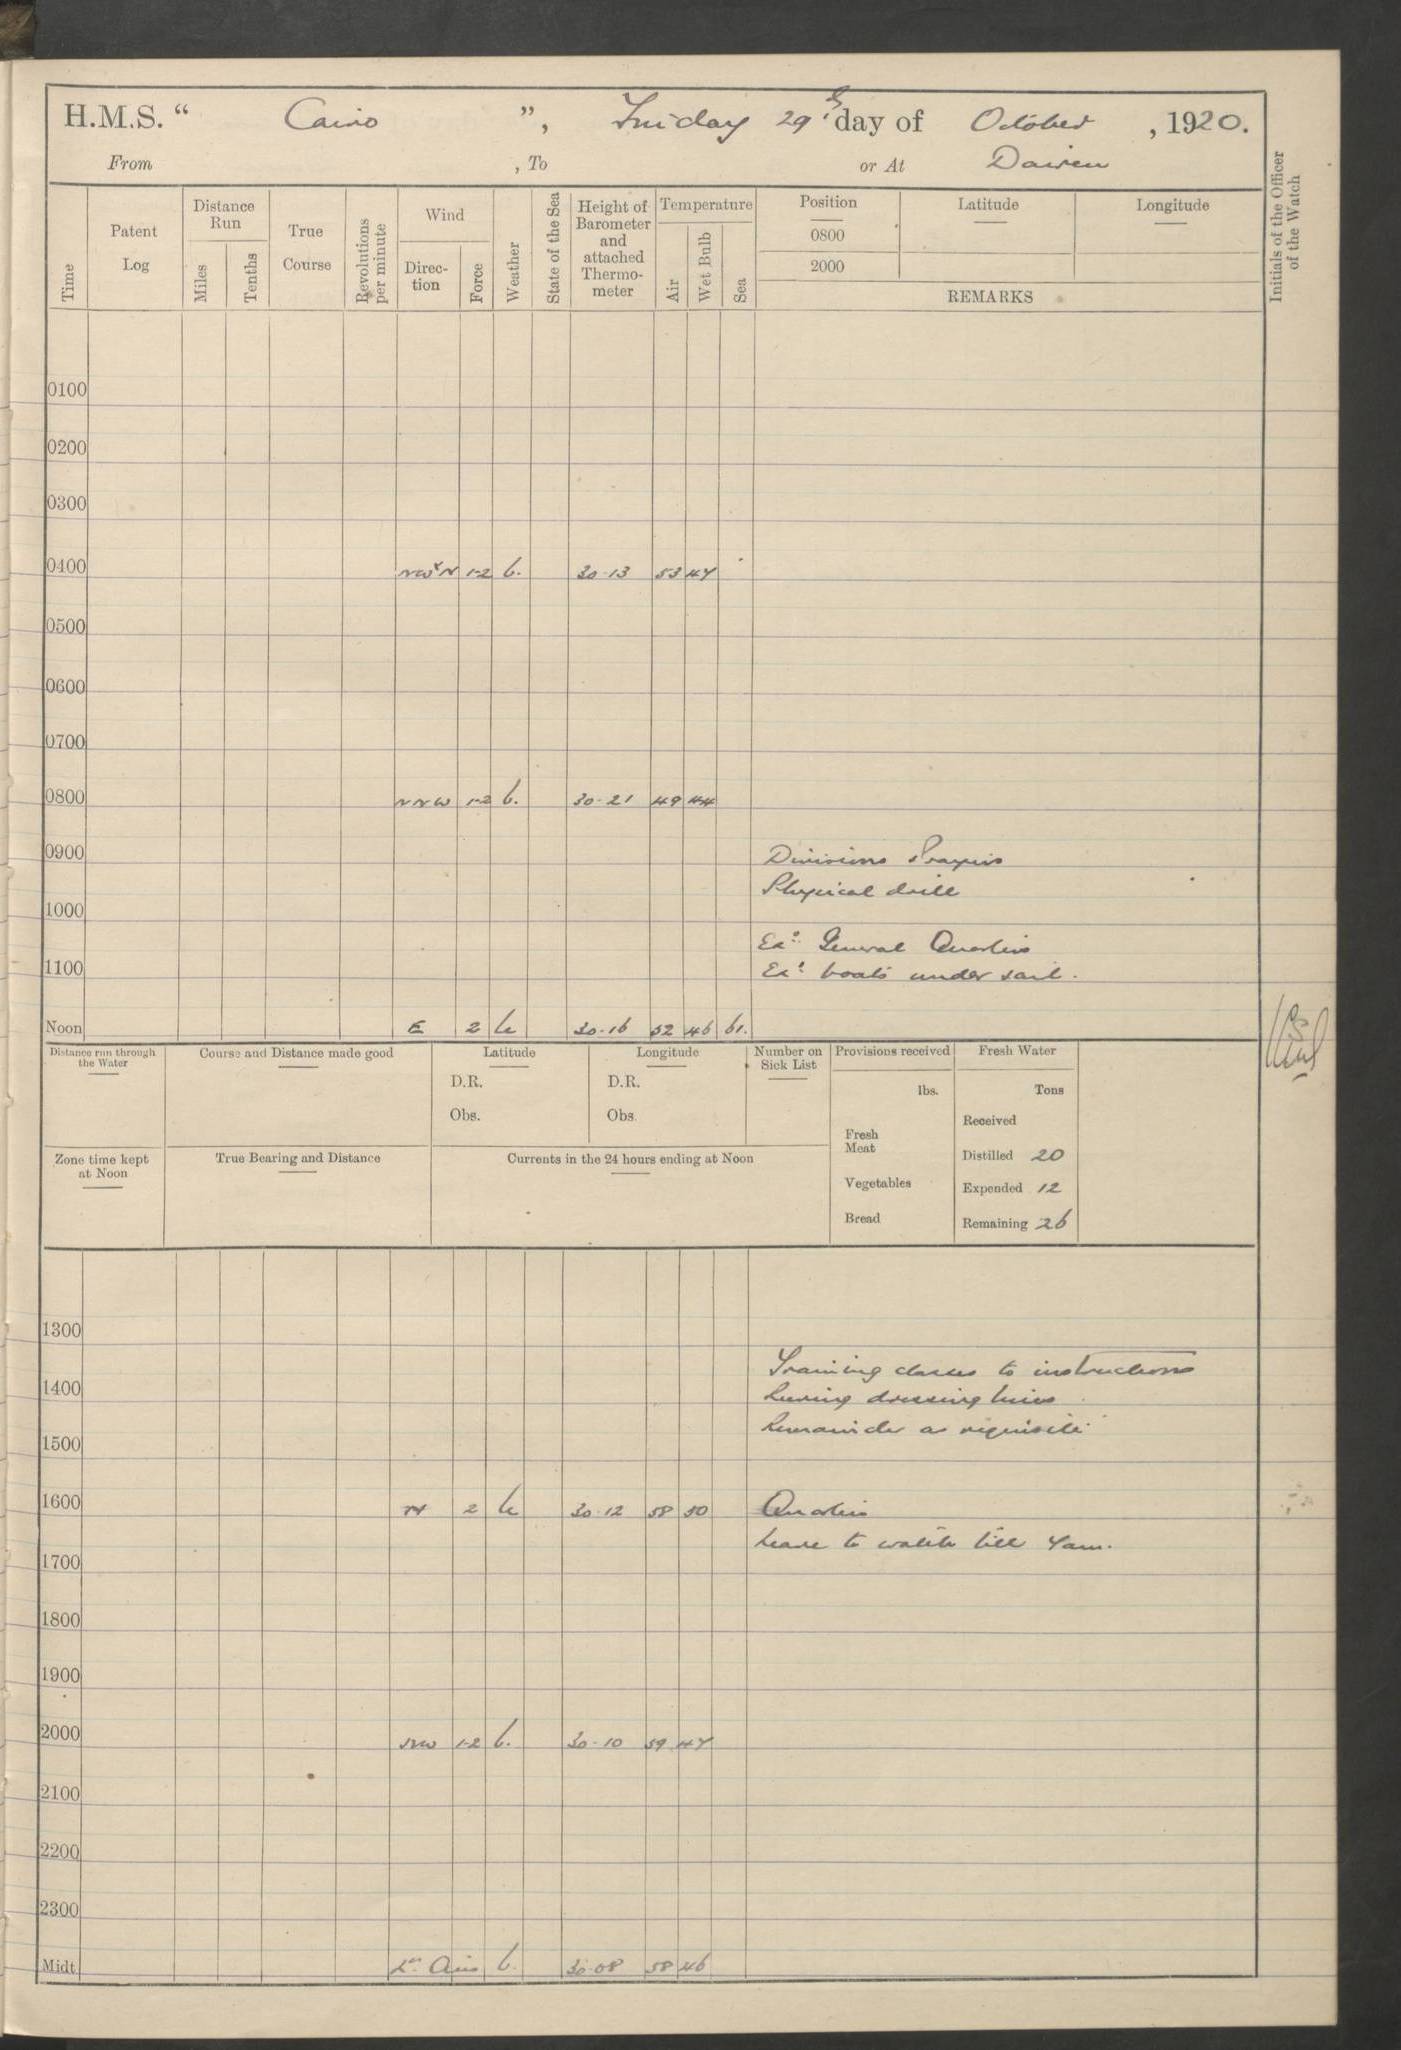 H.M.S. “ Cairo ”, Friday 29th day of October , 1920.
From , To or At Dairen
Time
Patent Log
Distance Run
Miles
Tenths
True Course
Revolutions per minute
Wind
Direc-tion
Force
Weather
State of the Sea
Height of Barometer and attached Thermo-meter
Temperature
Air
Wet Bulb
Sea
Position
0800
2000
Latitude
Longitude
REMARKS
Initials of the Officer of the Watch
0100
0200
0300
0400 NW'N 1-2 b. 30-13 53 47
0500
0600
0700
0800 NNW 1-2 b. 30-21 49 44
0900 Divisions Prayers
Physical drill
1000
Ex: General Quarters
1100 Ex: boats under sail.
Noon E 2 bc 30-16 52 46 61.
Distance run through the Water
Course and Distance made good
Latitude
D.R.
Obs.
Longitude
D.R.
Obs.
Number on Sick List
Provisions received
lbs.
Fresh Meat
Vegetables
Bread
Fresh Water
Tons
Received
Distilled 20
Expended 12
Remaining 26
Zone time kept at Noon
True Bearing and Distance
Currents in the 24 hours ending at Noon
1300
Training classes to instructions
1400 during dressing
Remainder as requisite
1500
1600 N 2 bc 30-12 58 50 Quarters
Leave to watch till 7am.
1700
1800
1900
2000 NW 1-2 b. 30-10 59 47
2100
2200
2300
Midt. Lt Airs b. 30-08 58 46